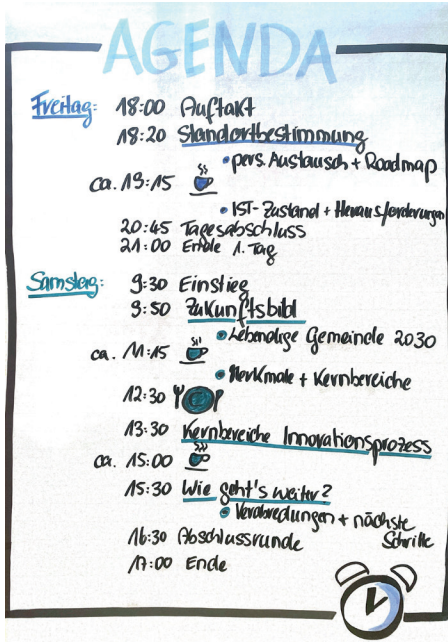 AGENDA
Freitag: 18:00 Auftakt
18:20 Standortbestimmung
• pers. Austausch + Roadmap
ca. 19:15
• IST-Zustand + Herausforderungen
20:45 Tagesabschluss
21:00 Ende 1. Tag
Samstag: 9:30 Einstieg
9:50 Zukunftsbild
• Lebendige Gemeinde 2030
ca. 11:15
• Merkmale + Kernbereiche
12:30
13:30 Kernbereiche Innovationsprozess
ca. 15:00
15:30 Wie geht's weiter?
• Verabredungen + nächste
Schritte
16:30 Abschlussrunde
17:00 Ende